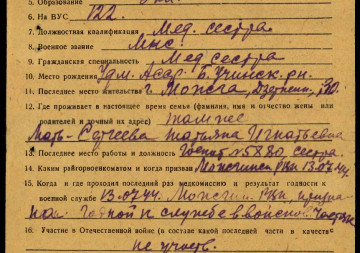 5. Образование
6. На ВУС 122.
7. Должностная квалификация Мед. сестра
8. Военное звание М/с.
9. Гражданская специальность Мед. сестра
10. Место рождения Удм. Асср. Б. Учинск. рн.
11. Последнее место жительства г. Можга, Дзержин., 90.
12. Где проживает в настоящее время семья (фамилия, имя и отчество жены или
родителей и точный их адрес) там же
Мать - Сергеева Татьяна Игнатьевна
13. Последнее место работы и должность Госпит. № 5880. сестра.
14. Каким райгорвоенкоматом и когда призван Можгинск. РВК 13.07.44.
15. Когда и где проходил последний раз медкомиссию и результат годности к
военной службе 13.07.44. Можгин. РВК, призна
на: годной к службе в войсков. частях
16. Участие в Отечественной войне (в составе какой последней части в качестве
не участв.